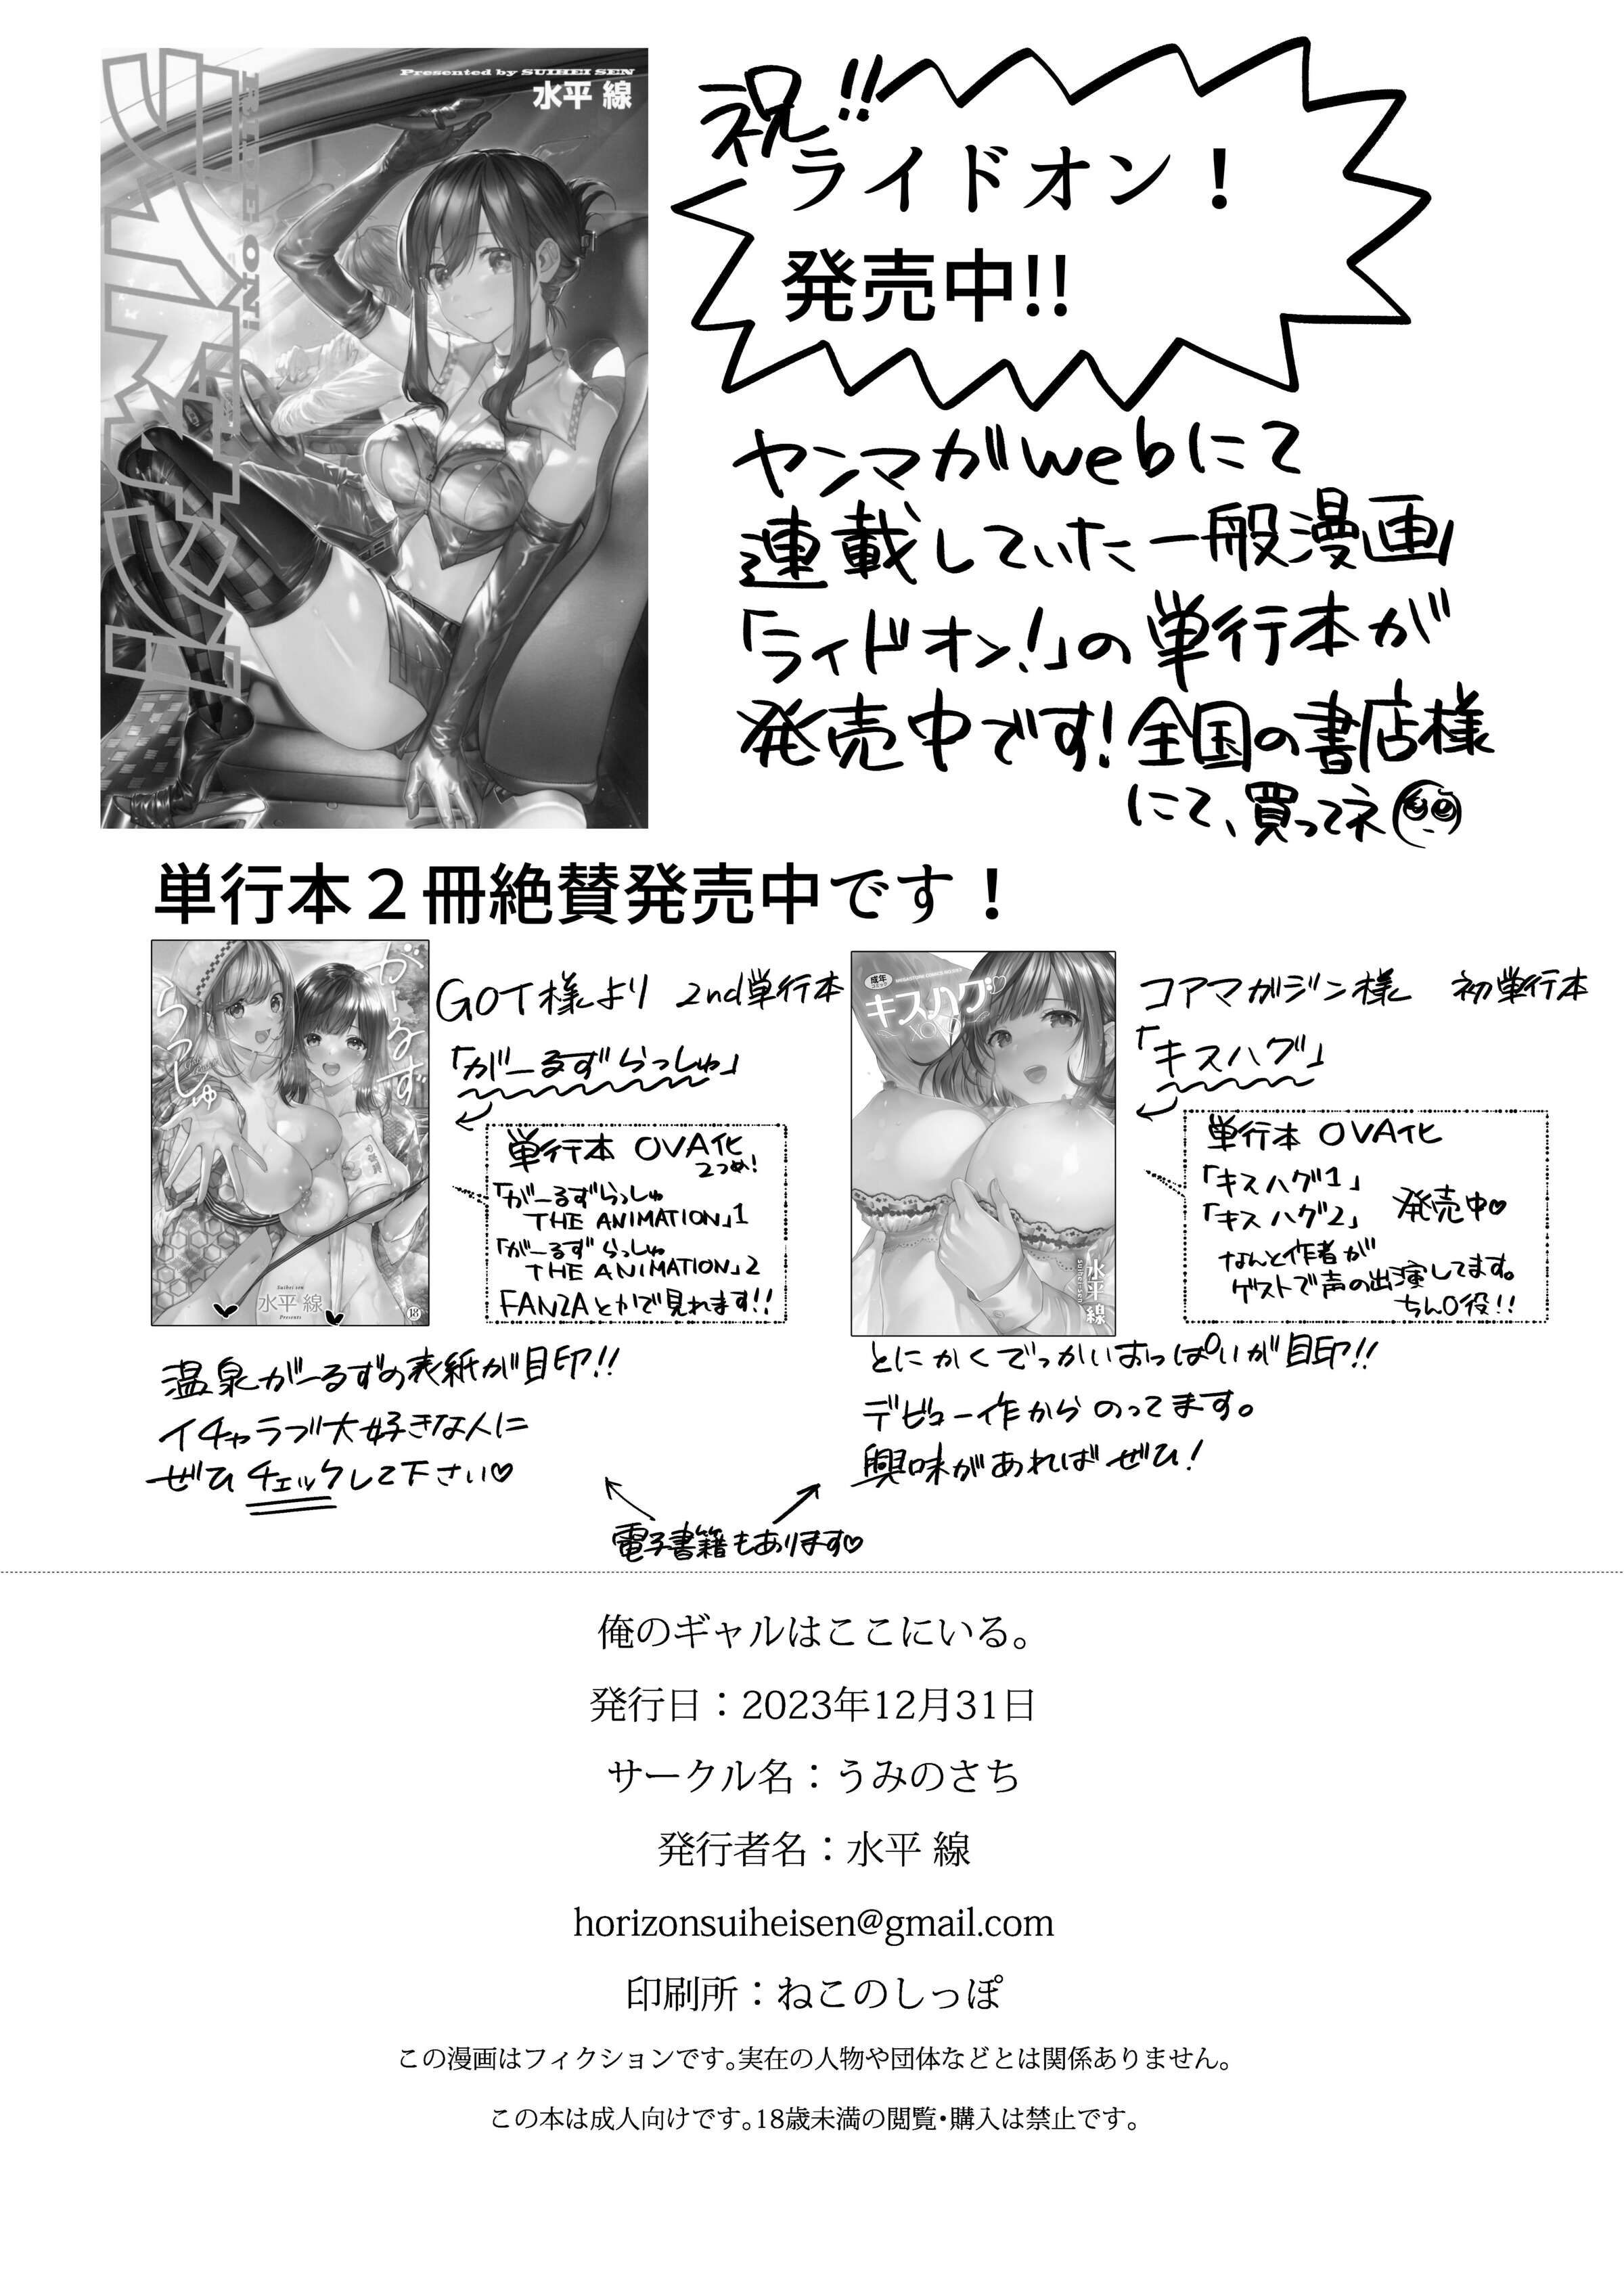 Presented by SUIHEI SEN
水平 線
RIDE-ON!
ライドオン!
祝!!
ライドオン！
発売中!!
ヤンマガwebにて
連載していた一般漫画
「ライドオン!」の単行本が
発売中です!全国の書店様
にて、買ってネ
単行本２冊絶賛発売中です！
がーるず
らっしゅ
Suihei sen
水平 線
Presents
18
GOT様より 2nd単行本
「がーるずらっしゅ」
単行本 OVA化
2つめ!
「がーるずらっしゅ
THE ANIMATION」1
「がーるずらっしゅ
THE ANIMATION」2
FANZAとかで見れます!!
温泉がーるずの表紙が目印!!
イチャラブ大好きな人に
ぜひチェックして下さい♡
成年
コミック
キスハグ
水平線
コアマガジン様 初単行本
「キスハグ」
単行本 OVA化
「キスハグ1」
「キスハグ2」 発売中♡
なんと作者が
ゲストで声の出演してます。
ちん〇役!!
とにかくでっかいおっぱいが目印!!
デビュー作からのってます。
興味があればぜひ!
電子書籍もあります♡
俺のギャルはここにいる。
発行日：2023年12月31日
サークル名：うみのさち
発行者名：水平 線
horizonsuiheisen@gmail.com
印刷所：ねこのしっぽ
この漫画はフィクションです。実在の人物や団体などとは関係ありません。
この本は成人向けです。18歳未満の閲覧・購入は禁止です。